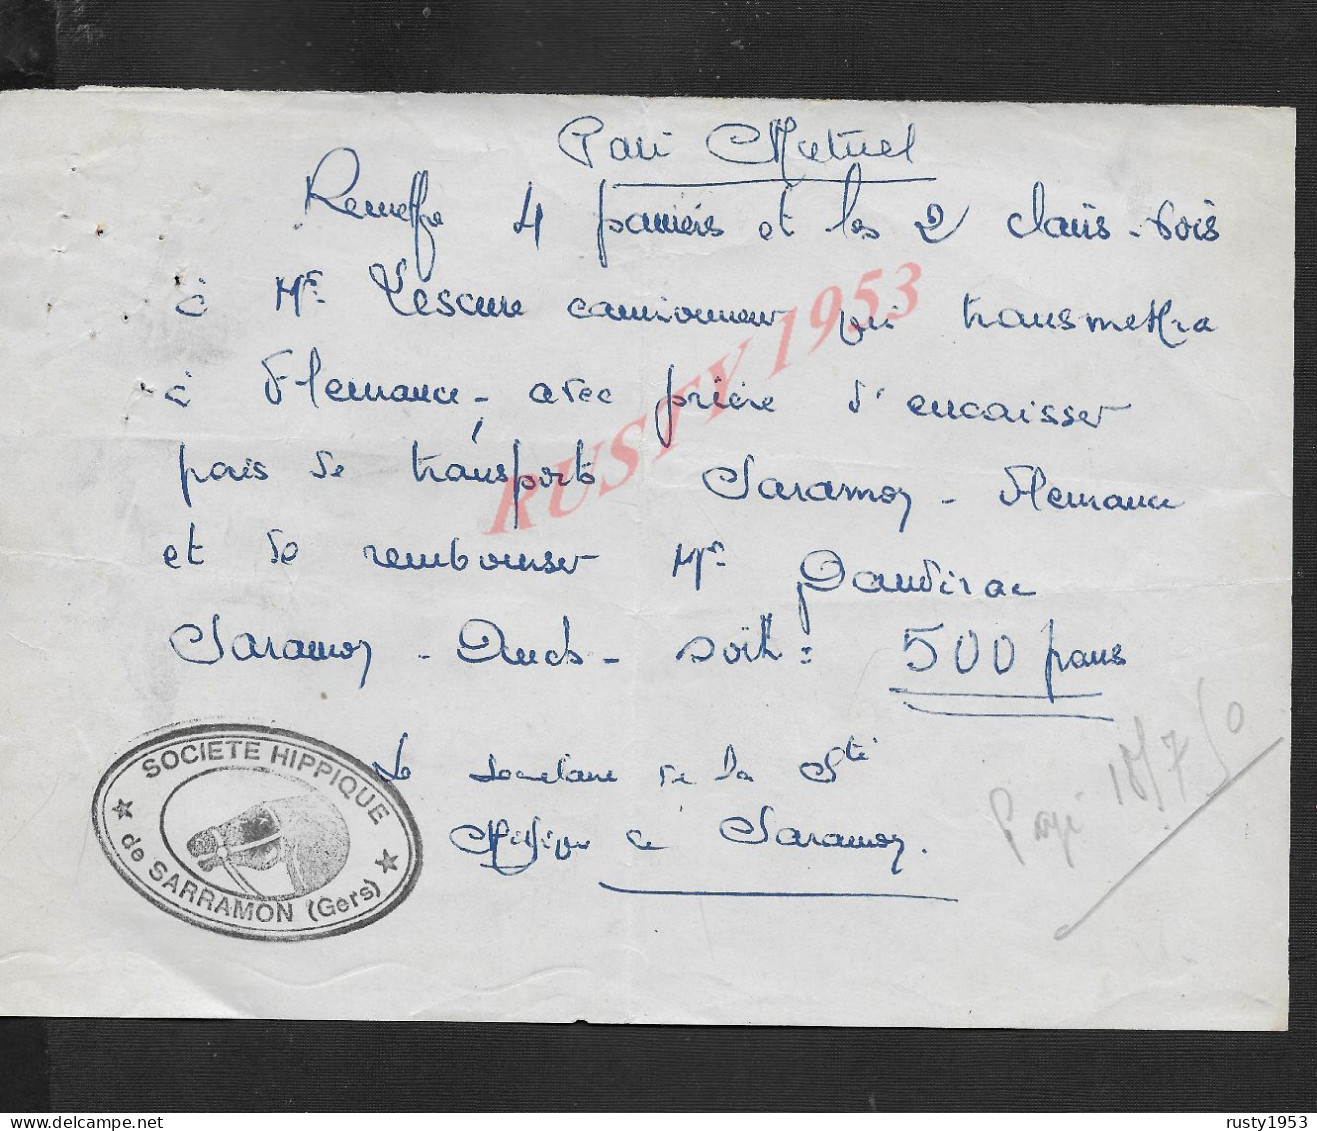 Pari Mutuel
Remettre 4 paniers et les 2 clairs-bois
à Mr Lescure camionneur qui transmettra
à Flemance, avec prière d'encaisser
frais de transport Saramon - Flemance
et de rembourser Mr Dandirac
Saramon - Auch - soit : 500 francs
Le secrétaire de la Sté
Hippique à Saramon.
Payé 18/7/50
SOCIETE HIPPIQUE
de SARRAMON (Gers)
RUSTY 1953
delcampe.net
rusty1953